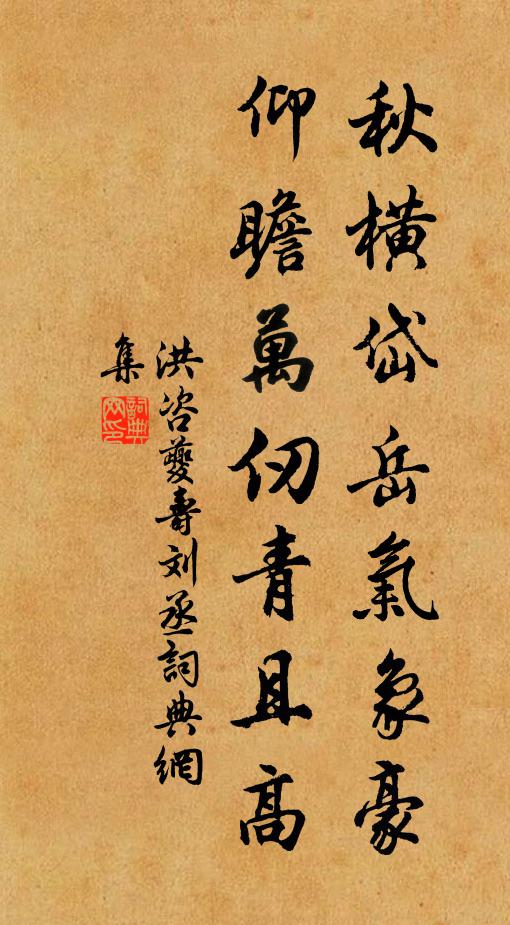 秋橫岱岳氣象豪
仰瞻萬仞青且高
洪咨夔壽刘丞詞典網
集
詞典网印